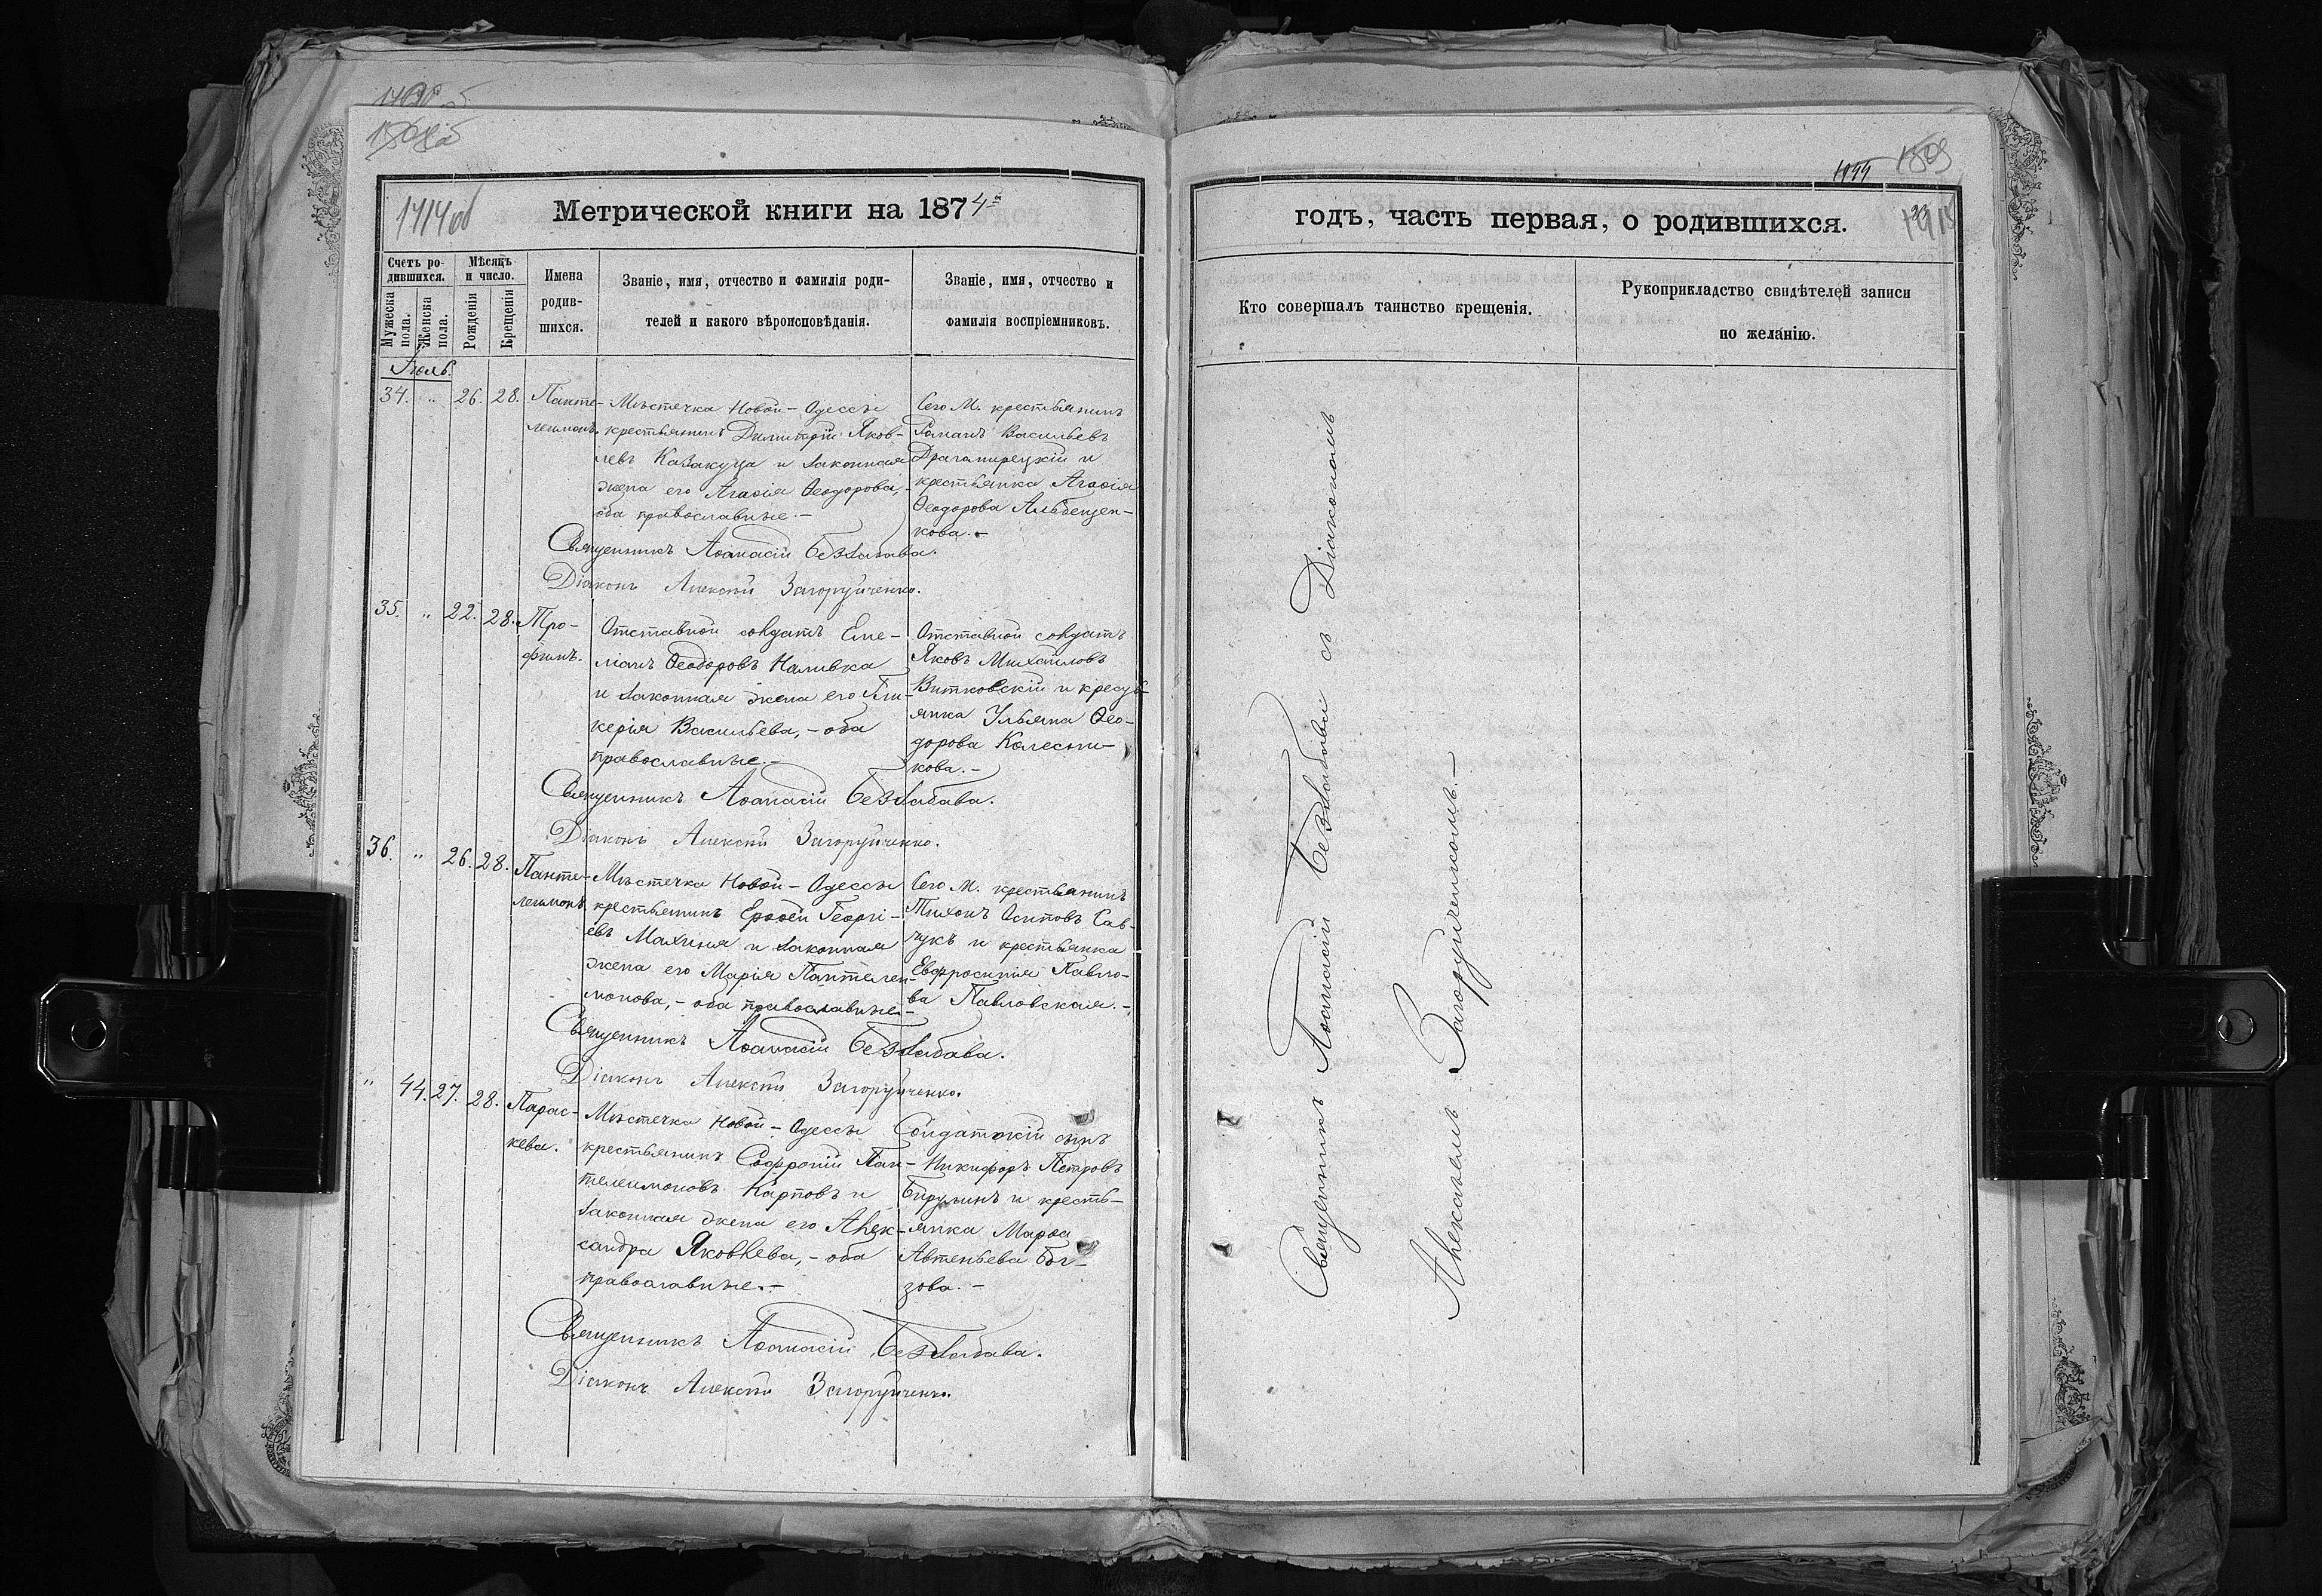 1714 об
Метрической книги на 1874й
Счетъ ро-
дившихся.
Мѣсяцъ
и число.
Мужеска
пола.
Женска
пола.
Рожденія
Крещенія
Имена
родив-
шихся.
Званіе, имя, отчество и фамилія роди-
телей и какого вѣроисповѣданія.
Званіе, имя, отчество и
фамилія воспріемниковъ.
Іюль.
34. „ 26. 28. Панте-
леимонъ.
Мѣстечка Новой-Одессы
крестьянинъ Димитрій Яков-
левъ Казакуца и законная
жена его Агафія Ѳеодорова,-
оба православные.-
Сего М. крестьянинъ
Романъ Васильевъ
Драгамирецкій и
крестьянка Агафія
Ѳеодорова
кова.-
Священникъ Аѳанасій Беззабава.
Діаконъ Алексѣй Загоруйченко.
35. „ 22. 28. Тро-
фимъ.
Отставной солдатъ Еме-
ліанъ Ѳеодоровъ Наливка
и законная жена его Гли-
керія Васильева,- оба
православные.-
Отставной солдатъ
Яковъ Михайловъ
Витковскій и кресть-
янка Ульяна Ѳео-
дорова Колесни-
кова.-
Священникъ Аѳанасій Беззабава.
Діаконъ Алексѣй Загоруйченко.
36. „ 26. 28. Панте-
леимонъ.
Мѣстечка Новой-Одессы
крестьянинъ Ероѳей Георгі-
евъ Махиня и законная
жена его Марія Пантелеи-
монова,- оба православные-
Сего М. крестьянинъ
Тихонъ Осиповъ Сав-
чукъ и крестьянка
Евфросинія Павло-
ва Павловская.-
Священникъ Аѳанасій Беззабава.
Діаконъ Алексѣй Загоруйченко.
„ 44. 27. 28. Парас-
кева.
Мѣстечка Новой-Одессы
крестьянинъ Софроній Пан-
телеимоновъ Карповъ и
законная жена его Алек-
сандра Яковлева,- оба
православные.-
Солдатскій сынъ
Никифоръ Петровъ
Бирулинъ и кресть-
янка Марѳа
зова.-
Священникъ Аѳанасій Беззабава.
Діаконъ Алексѣй Загоруйченко.
годъ, часть первая, о родившихся.
Кто совершалъ таинство крещенія.
Рукоприкладство свидѣтелей записи
по желанію.
Священникъ Аѳанасій Беззабава съ Діакономъ
Алексѣемъ Загоруйченкомъ.-